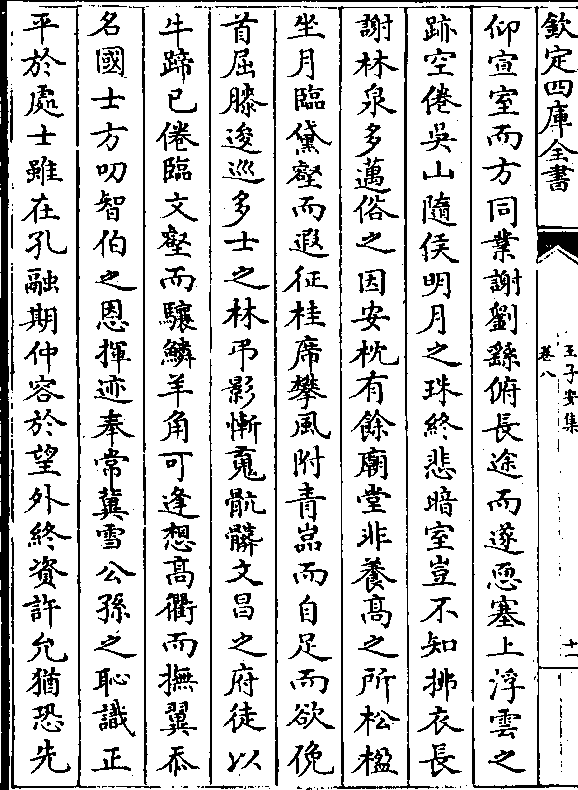 欽定四庫全書
王子安集
卷八
十一
仰宣室而方同業謝劉繇俯長途而遂恧塞上浮雲之
跡空倦吳山隨侯明月之珠終悲暗室豈不知拂衣長
謝林泉多邁俗之因安枕有餘廟堂非養高之所松楹
坐月臨黛壑而遐征桂席攀風附青嵓而自足而欲俛
首屈膝逡巡多士之林弔影慚䰟骯髒文昌之府徒以
牛蹄已倦臨文壑而驤鱗羊角可逢想高衢而撫翼忝
名國士方叨智伯之恩揮迹奉常冀雪公孫之恥識正
平於處士雖在孔融期仲容於望外終資許允猶恐先